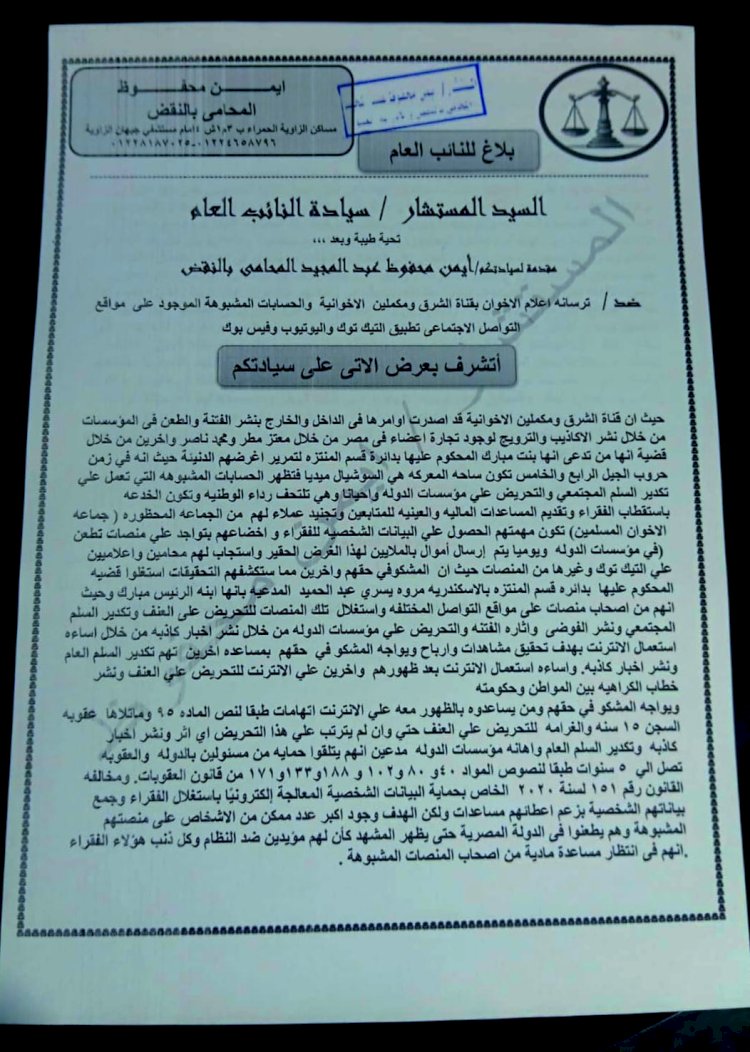 ايمــــن محفــــوظ
المحامى بالنقض
مساكن الزاوية الحمراء ب ٣م١ش ١٥امام مستشفى جيهان الزاوية
٠١٢٢٤٦٥٨٧٩٦-٠١٢٢٨١٨٧٠٢٥
بلاغ للنائب العام
السيد المستشار / سيادة النائب العام
تحية طيبة وبعد ,,,
مقدمة لسيادتكم/أيمن محفوظ عبد المجيد المحامى بالنقض
ضد / ترسانه اعلام الاخوان بقناة الشرق ومكملين الاخوانية والحسابات المشبوهة الموجود على مواقع
التواصل الاجتماعى تطبيق التيك توك واليوتيوب وفيس بوك
أتشرف بعرض الاتى على سيادتكم
حيث ان قناة الشرق ومكملين الاخوانية قد اصدرت اوامرها فى الداخل والخارج بنشر الفتنة والطعن فى المؤسسات
من خلال نشر الاكاذيب والترويج لوجود تجارة اعضاء فى مصر من خلال معتز مطر ومحمد ناصر واخرين من خلال
قضية انها من تدعى انها بنت مبارك المحكوم عليها بدائرة قسم المنتزه لتمرير اغرضهم الدنيئة حيث انه في زمن
حروب الجيل الرابع والخامس تكون ساحه المعركه هي السوشيال ميديا فتظهر الحسابات المشبوهه التي تعمل علي
تكدير السلم المجتمعي والتحريض علي مؤسسات الدوله واحيانا وهي تلتحف رداء الوطنيه وتكون الخدعه
باستقطاب الفقراء وتقديم المساعدات الماليه والعينيه للمتابعين وتجنيد عملاء لهم من الجماعه المحظوره ( جماعه
الاخوان المسلمين) تكون مهمتهم الحصول علي البيانات الشخصيه للفقراء و اخضاعهم بتواجد علي منصات تطعن
(في مؤسسات الدوله ويوميا يتم إرسال أموال بالملايين لهذا الغرض الحقير واستجاب لهم محامين واعلاميين
علي التيك توك وغيرها من المنصات حيث ان المشكوفي حقهم واخرين مما ستكشفهم التحقيقات استغلوا قضيه
المحكوم عليها بدائره قسم المنتزه بالاسكندريه مروه يسري عبد الحميد المدعيه بانها ابنه الرئيس مبارك وحيث
انهم من اصحاب منصات على مواقع التواصل المختلفه واستغلال تلك المنصات للتحريض على العنف وتكدير السلم
المجتمعي ونشر الفوضى واثاره الفتنه والتحريض علي مؤسسات الدوله من خلال نشر اخبار كاذبه من خلال اساءه
استعمال الانترنت بهدف تحقيق مشاهدات وارباح ويواجه المشكو في حقهم بمساعده اخرين تهم تكدير السلم العام
ونشر اخبار كاذبه. واساءه استعمال الانترنت بعد ظهورهم واخرين علي الانترنت للتحريض علي العنف ونشر
خطاب الكراهيه بين المواطن وحكومته
ويواجه المشكو في حقهم ومن يساعدوه بالظهور معه علي الانترنت اتهامات طبقا لنص الماده ٩٥ وماتلاها عقوبه
السجن ١٥ سنه والغرامه للتحريض علي العنف حتي وان لم يترتب علي هذا التحريض اي اثر ونشر أخبار
كاذبه وتكدير السلم العام واهانه مؤسسات الدوله مدعين انهم يتلقوا حمايه من مسئولين بالدوله والعقوبه
تصل الي ٥ سنوات طبقا لنصوص المواد ٤٠و ٨٠و ١٠٢ و ١٨٨و١٣٣و ١٧١ من قانون العقوبات. ومخالفه
القانون رقم ١٥١ لسنة ٢٠٢٠ الخاص بحماية البيانات الشخصية المعالجة إلكترونيًا باستغلال الفقراء وجمع
بياناتهم الشخصية بزعم اعطائهم مساعدات ولكن الهدف وجود اكبر عدد ممكن من الاشخاص على منصتهم
المشبوهة وهم يطعنوا فى الدولة المصرية حتى يظهر المشهد كأن لهم مؤيدين ضد النظام وكل ذنب هؤلاء الفقراء
.انهم فى انتظار مساعدة مادية من اصحاب المنصات المشبوهة .